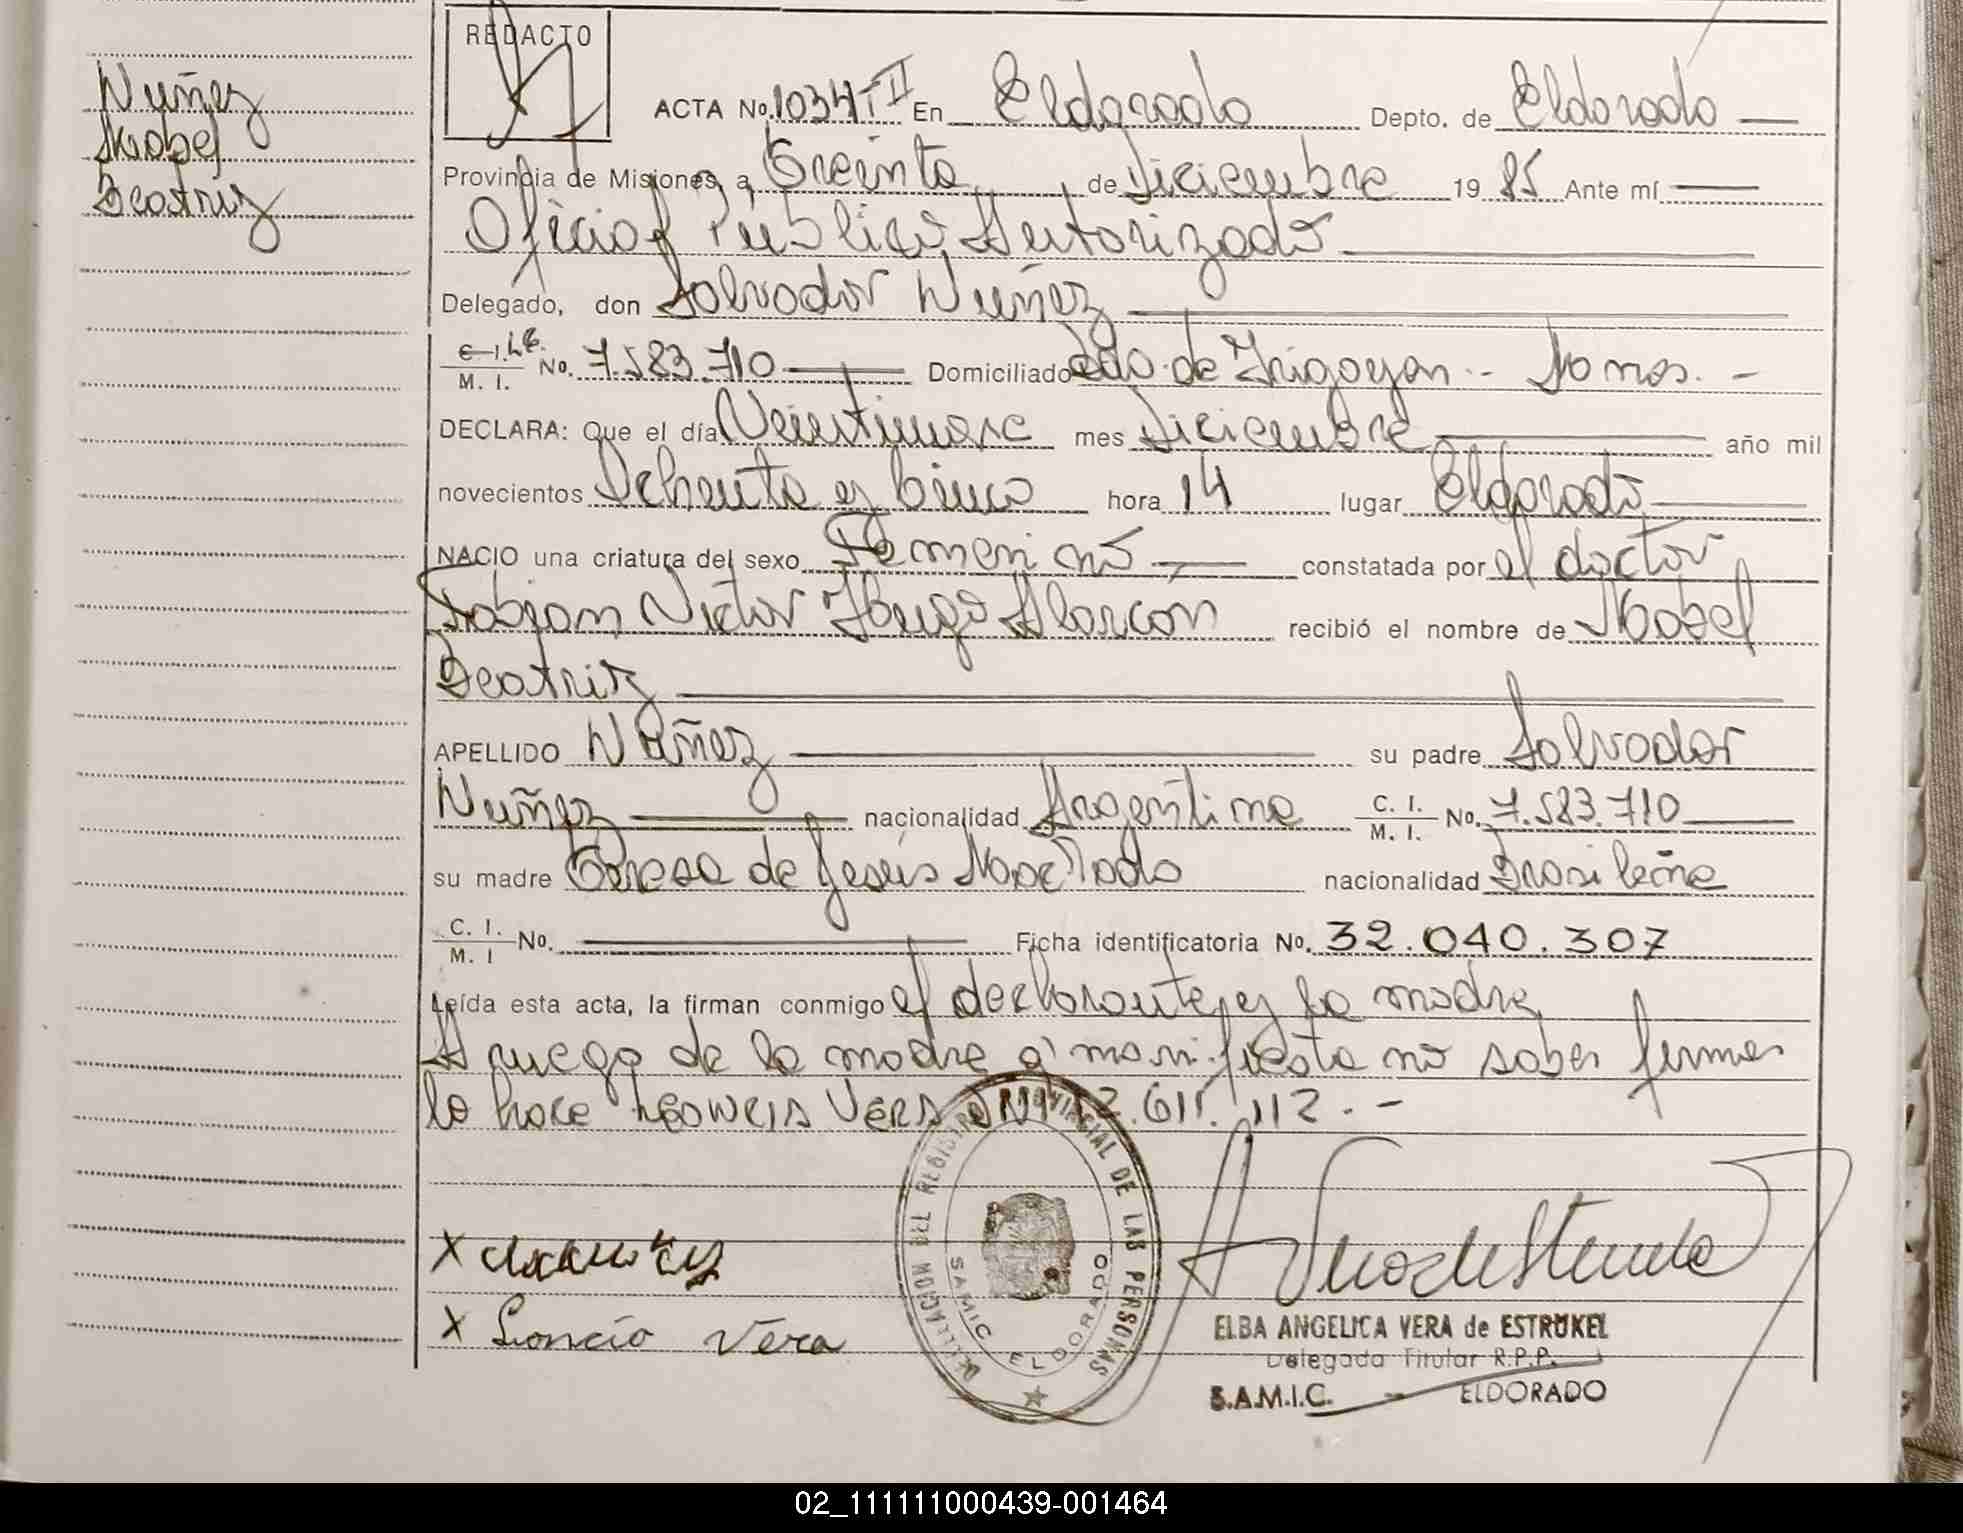 REDACTO
Nuñez
Mabel
Beatriz
ACTA No. 1034 T II En Eldorado Depto. de Eldorado
Provincia de Misiones, a Treinta de Diciembre 19 85 Ante mí
Oficial Público Autorizado
Delegado, don Salvador Nuñez
C. I. L.E. M. I. No. 7.583.710 Domiciliado Bdo. de Irigoyen.-
DECLARA: Que el día Veintinueve mes Diciembre año mil
novecientos Ochenta y Cinco hora 14 lugar Eldorado
NACIO una criatura del sexo Femenino constatada por el doctor
Fabian Victor Hugo Alarcon recibió el nombre de Mabel
Beatriz
APELLIDO Nuñez su padre Salvador
Nuñez nacionalidad Argentina C. I. M. I. No. 7.583.710
su madre Teresa de Jesús Machado nacionalidad Brasileña
C. I. M. I No. Ficha identificatoria No. 32.040.307
Leída esta acta, la firman conmigo el declarante, y la madre
A ruego de la madre q' manifiesta no saber firmar
lo hace Vera
X
X Loncio Vera
DELEGACION DEL REGISTRO PROVINCIAL DE LAS PERSONAS
SAMIC ELDORADO
ELBA ANGELICA VERA de ESTRUKEL
Delegada Titular R.P.P.
S.A.M.I.C. - ELDORADO
02_111111000439-001464